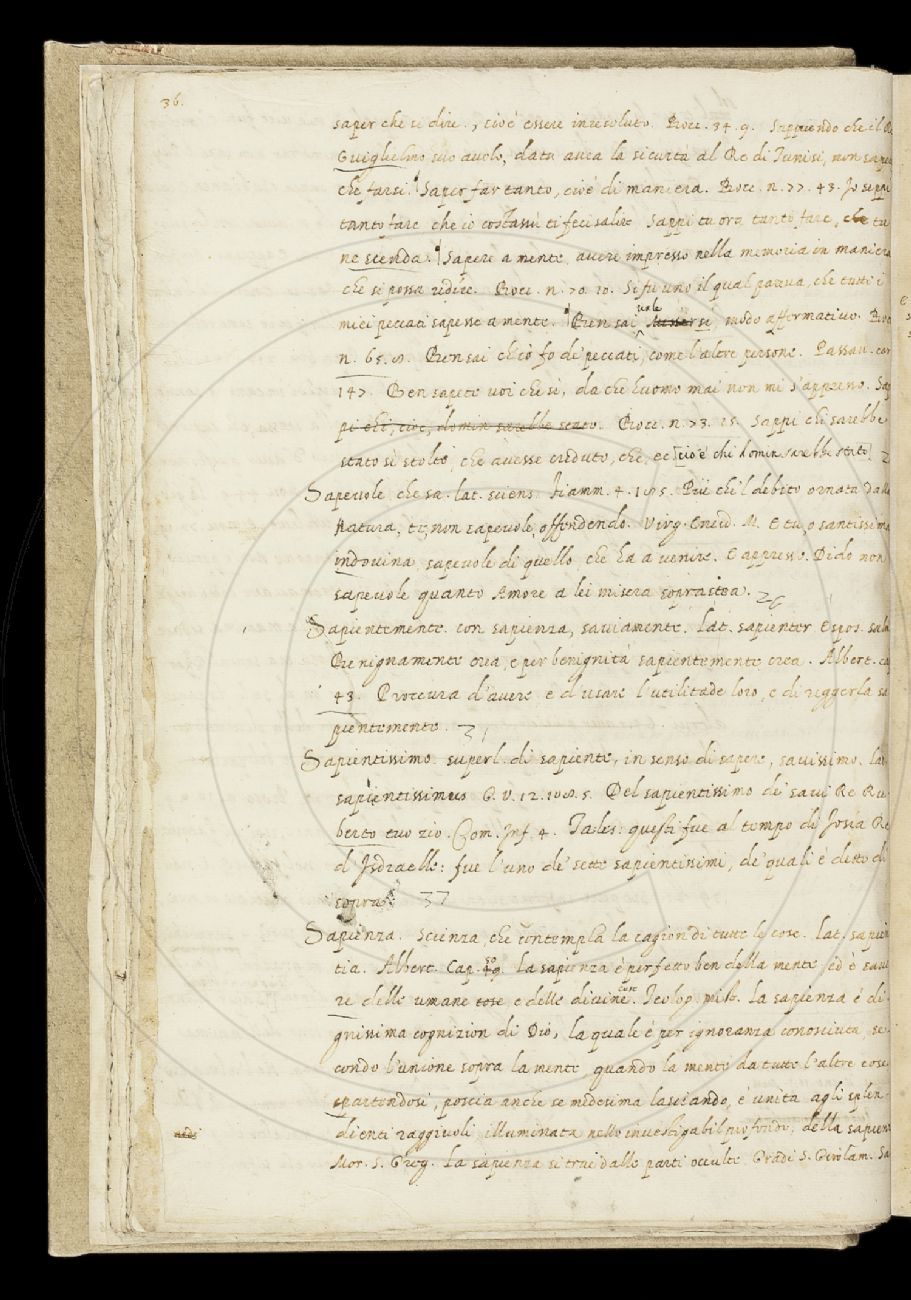 36.
saper che si dire., cioè essere inresoluto. Bocc. 34. 9. Sappiendo che il Re
Guiglielmo suo avolo, data avea la sicurtà al Re di Tunisi, non sapea
che farsi. Saper far tanto, cioè di maniera. Bocc. n. 77. 43. Io seppi
tanto fare che io costassù ti feci salire. Sappi tu ora tanto fare, che tu
ne scenda. Sapere a mente, avere impresso nella memoria in maniera
che si possa ridire. Bocc. n. 70. 10. Si fu uno il qual pareva, che tutti i
miei peccati sapesse a mente. Ben sai vale modo affermativo. Bocc
n. 65. Ben sai ch'io fo de' peccati, come l'altre persone. Passav. car
147. Ben sapete voi che sì, da che huomo mai non mi s'appreno. Sap
pi chi, cioè, domin sarebbe stato. Bocc. n. 73. 15. Sappi chi sarebbe
stato sì stolto, che avesse creduto, che, ec [cioè chi domin sarebbe stato]
Sapevole che sa. lat. sciens. Fiamm. 4. 105. Più che 'l debito ornata dalla
Natura, te, non sapevole, offendendo. Virg. Eneid. M. E tu, o santissima
indovina, sapevole di quello, che ha a venire. E appresso. Dido non
sapevole quanto Amore a lei misera soprastea.
Sapientemente. con sapienza, saviamente. lat. sapienter Espos. salm
Benignamente crea, e per benignità sapientemente crea. Albert. cap
43. Proccura d'avere e d'usare l'utilitade loro, e di reggerla sa
pientemente. 31
Sapientissimo. superl. di sapiente, in senso di sapere, savissimo. lat.
sapientissimus G. V. 12. 108. 5. Del sapientissimo de' savi Re Ru
berto tuo zio. Com. Inf. 4. Tales: questi fue al tempo di Josia Re
d'Isdraelle: fue l'uno de' sette sapientissimi, de' quali è detto di
sopra. 37
Sapienza. Scienza, che contempla la cagion di tutte le cose. lat. sapien
tia. Albert. Cap. 50 La sapienza è perfetto ben della mente, ed è save
re delle umane cose, e delle divine cose. Teolog. mist. La sapienza è di
gnissima cognizion di Dio, la quale è per ignoranza conosciuta, se
condo l'unione sopra la mente, quando la mente da tutte l'altre cose
spartendosi, poscia anche se medesima lasciando, è unita agli splen
dienti raggiuoli, illuminata nello investigabil profondo, della sapien
Mor. S. Greg. La sapienza si trae dalle parti occulte. Gradi S. Girolam. Sa